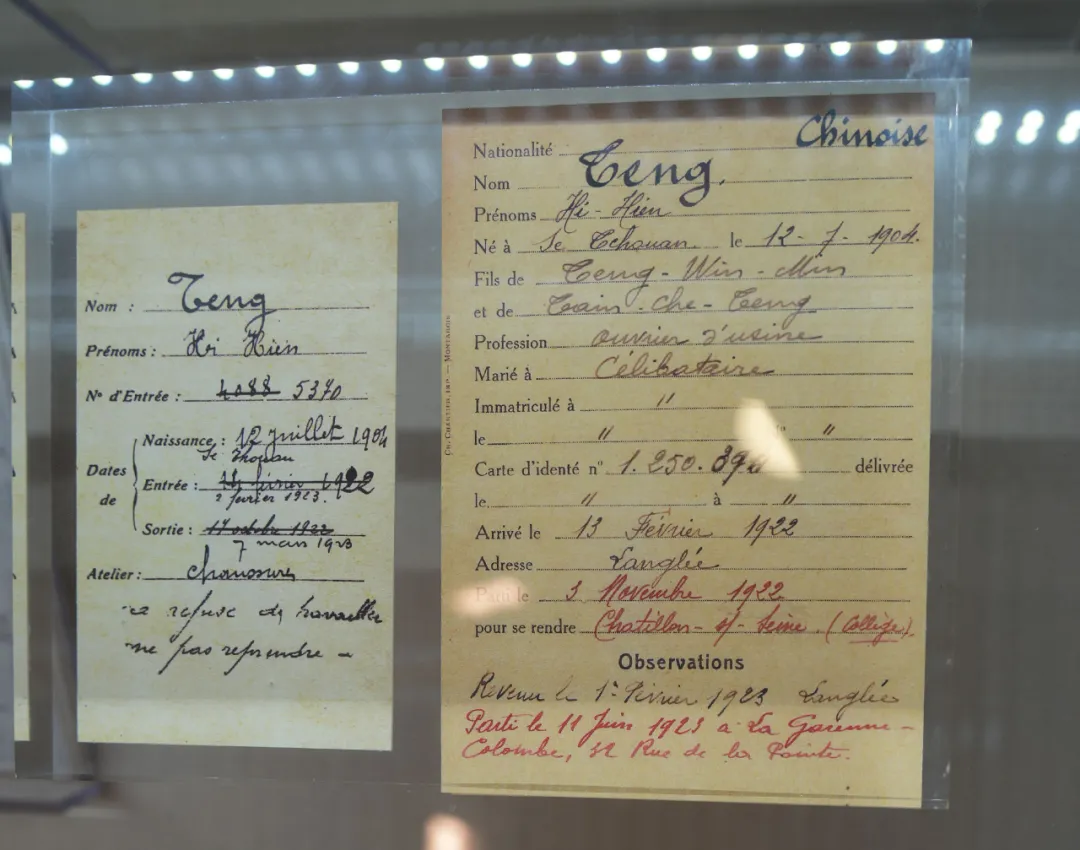 Nom : Teng
Prénoms : Hi Hien
N° d'Entrée : 4088 5370
Dates de
Naissance : 12 juillet 1904
Se Tchouan
Entrée : 14 février 1922
2 fevrier 1923.
Sortie : 17 octobre 1922
7 mars 1923
Atelier : chaussures
a refusé de travailler
ne pas reprendre -
Nationalité Chinoise
Nom Teng.
Prénoms Hi-Hien
Né à Se Tchouan le 12-7-1904.
Fils de Teng-Win-Min
et de Tain-Che-Teng
Profession ouvrier d'usine
Marié à Célibataire
Immatriculé à "
le " "
Carte d'identé n° 1.250. délivrée
le " à "
Arrivé le 13 Février 1922
Adresse Langlée
Parti le 3 Novembre 1922
pour se rendre Chatillon-s/-Seine. (Collège).
Observations
Revenu le 1er Février 1923 Langlée
Parti le 11 Juin 1923 à La Garenne-
Colombe, 32 Rue de la Pointe.
CH. CHARTIER, IMP. — MONTARGIS